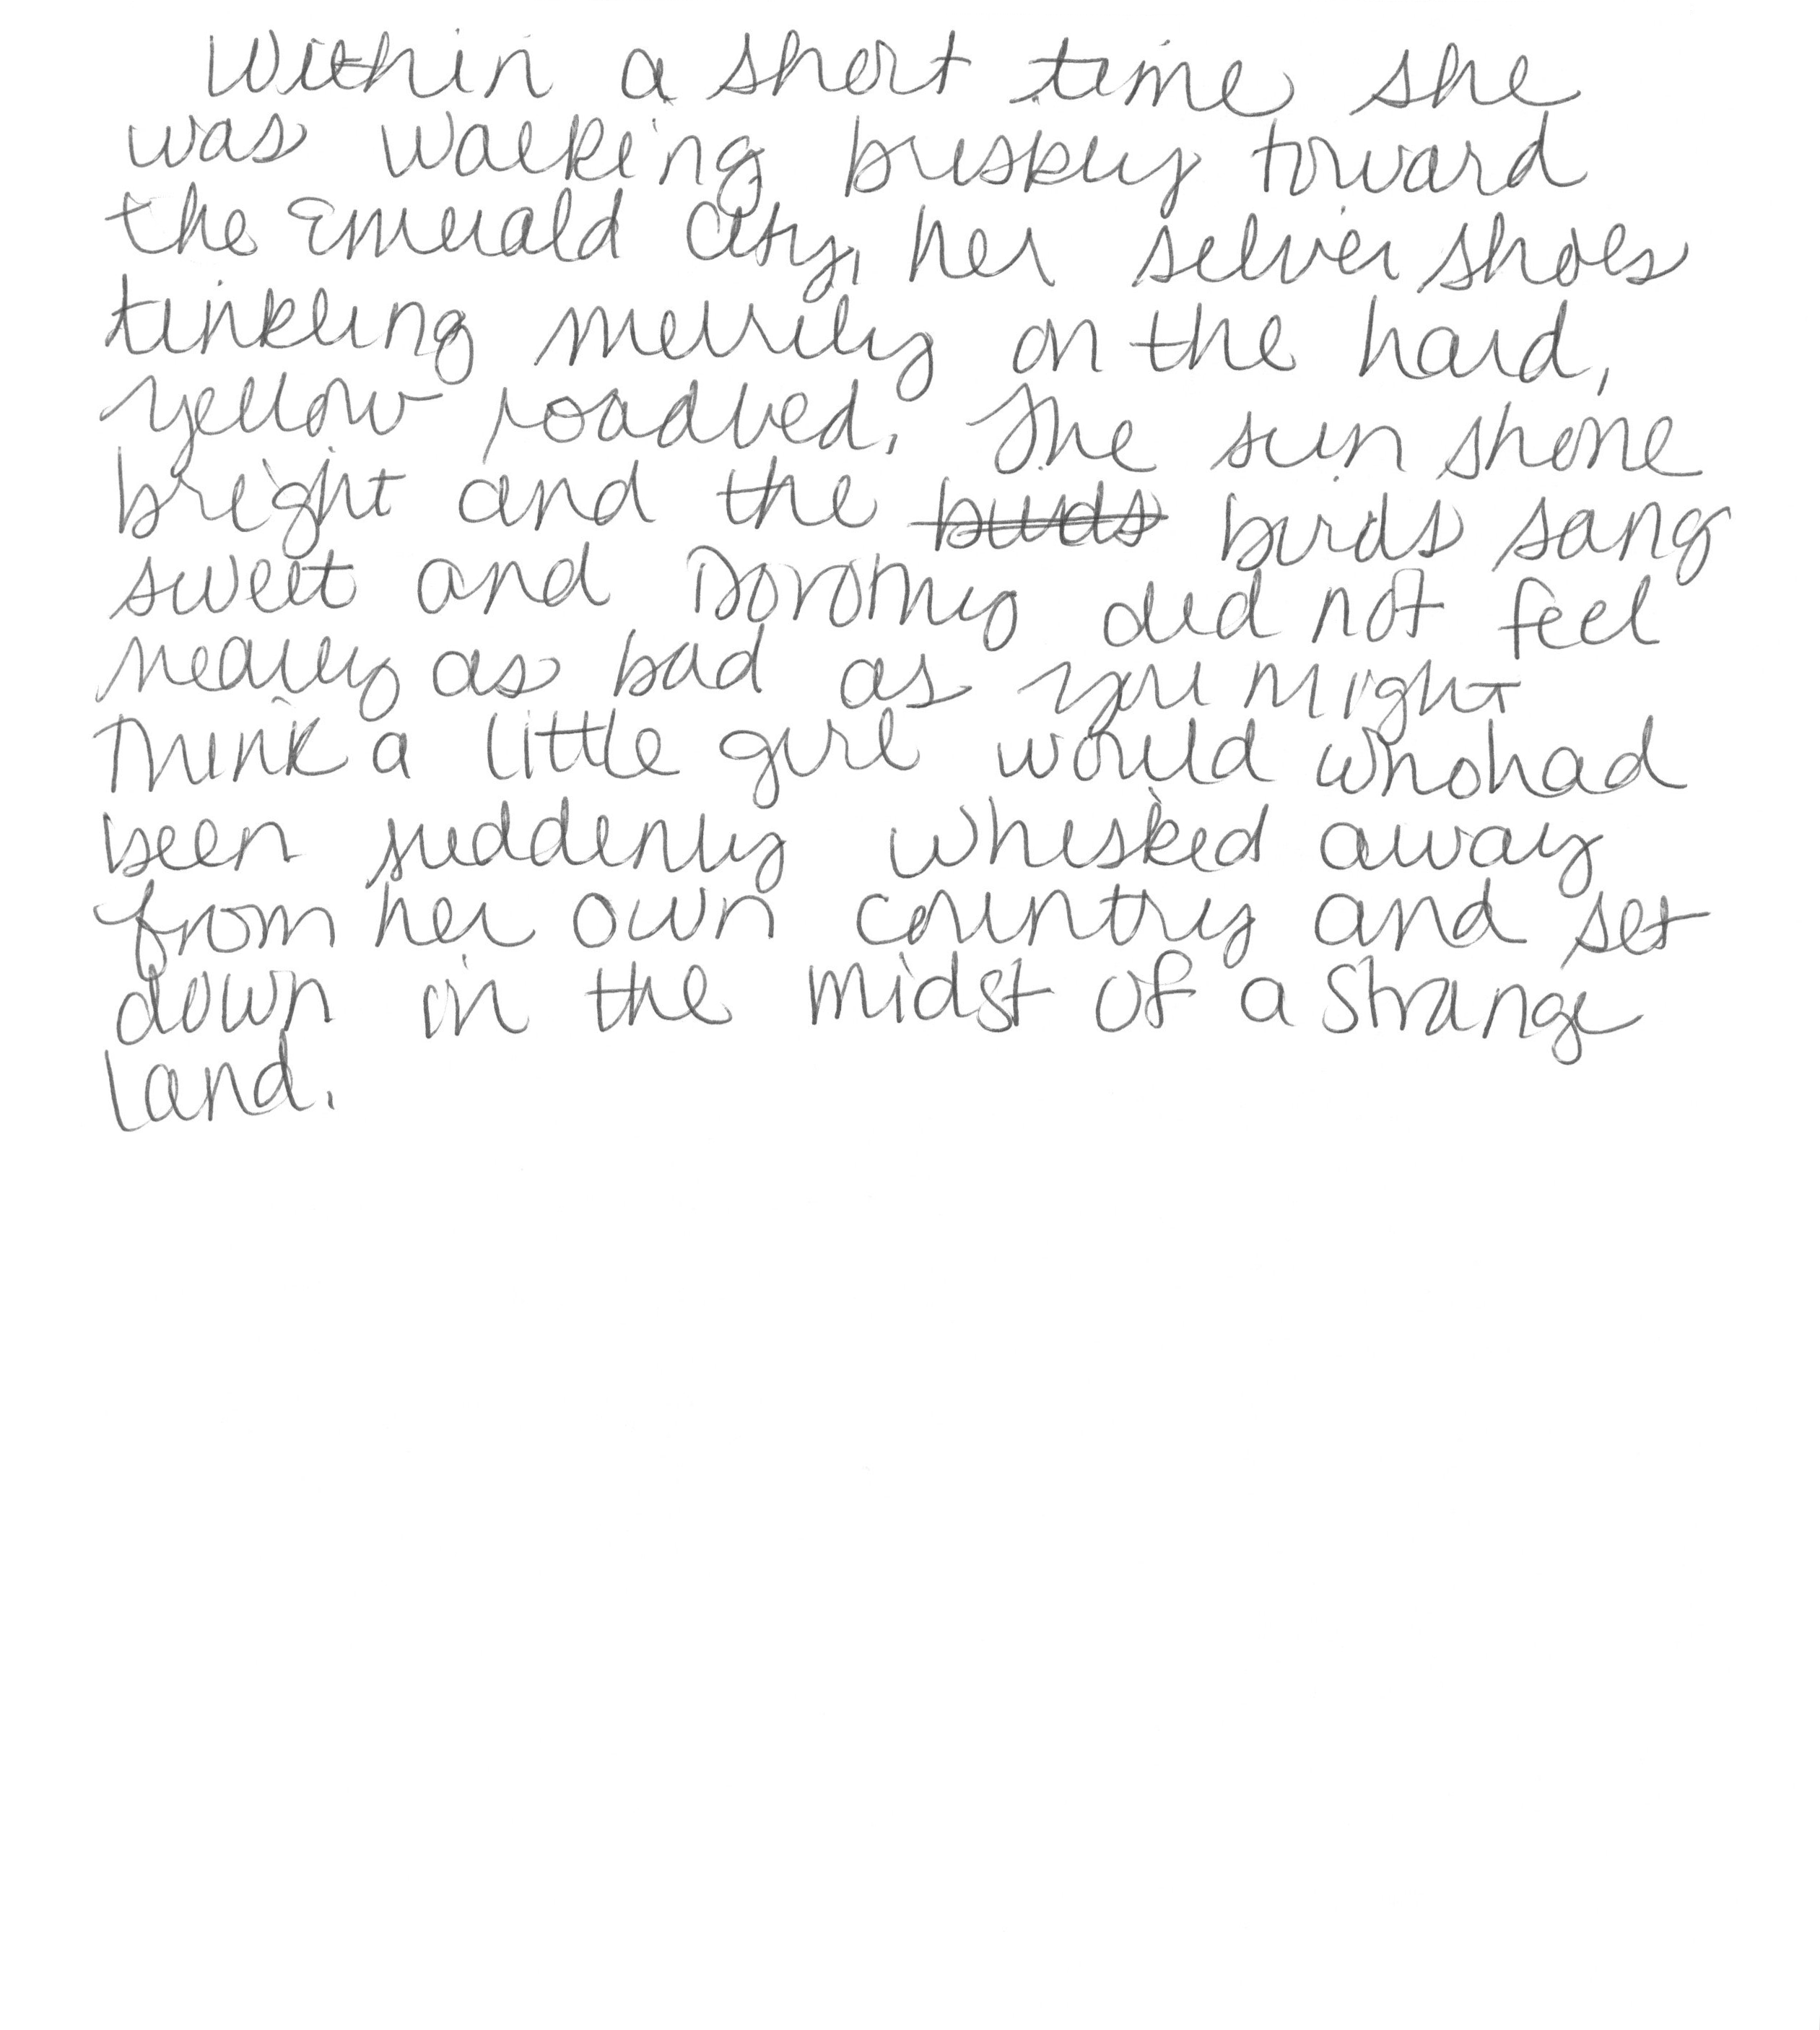 Within a short time she
was walking briskly toward
the Emerald City, her silver shoes
tinkling merrily on the hard,
yellow roadbed. The sun shone
bright and the birds birds sang
sweet and Dorothy did not feel
nearly as bad as you might
think a little girl would who had
been suddenly whisked away
from her own country and set
down in the midst of a strange
land.